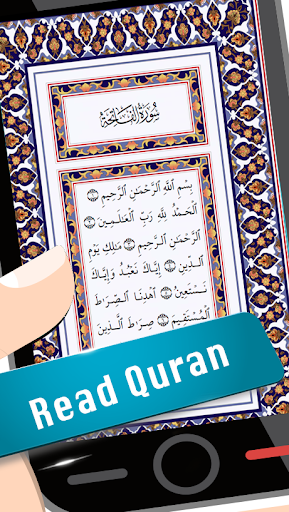 سُورَةُ الْفَاتِحَةِ
بِسْمِ ٱللَّهِ ٱلرَّحْمَٰنِ ٱلرَّحِيمِ ١
ٱلْحَمْدُ لِلَّهِ رَبِّ ٱلْعَٰلَمِينَ ٢
ٱلرَّحْمَٰنِ ٱلرَّحِيمِ ٣ مَٰلِكِ يَوْمِ
ٱلدِّينِ ٤ إِيَّاكَ نَعْبُدُ وَإِيَّاكَ
نَسْتَعِينُ ٥ ٱهْدِنَا ٱلصِّرَٰطَ
ٱلْمُسْتَقِيمَ ٦ صِرَٰطَ ٱلَّذِينَ
Read Quran